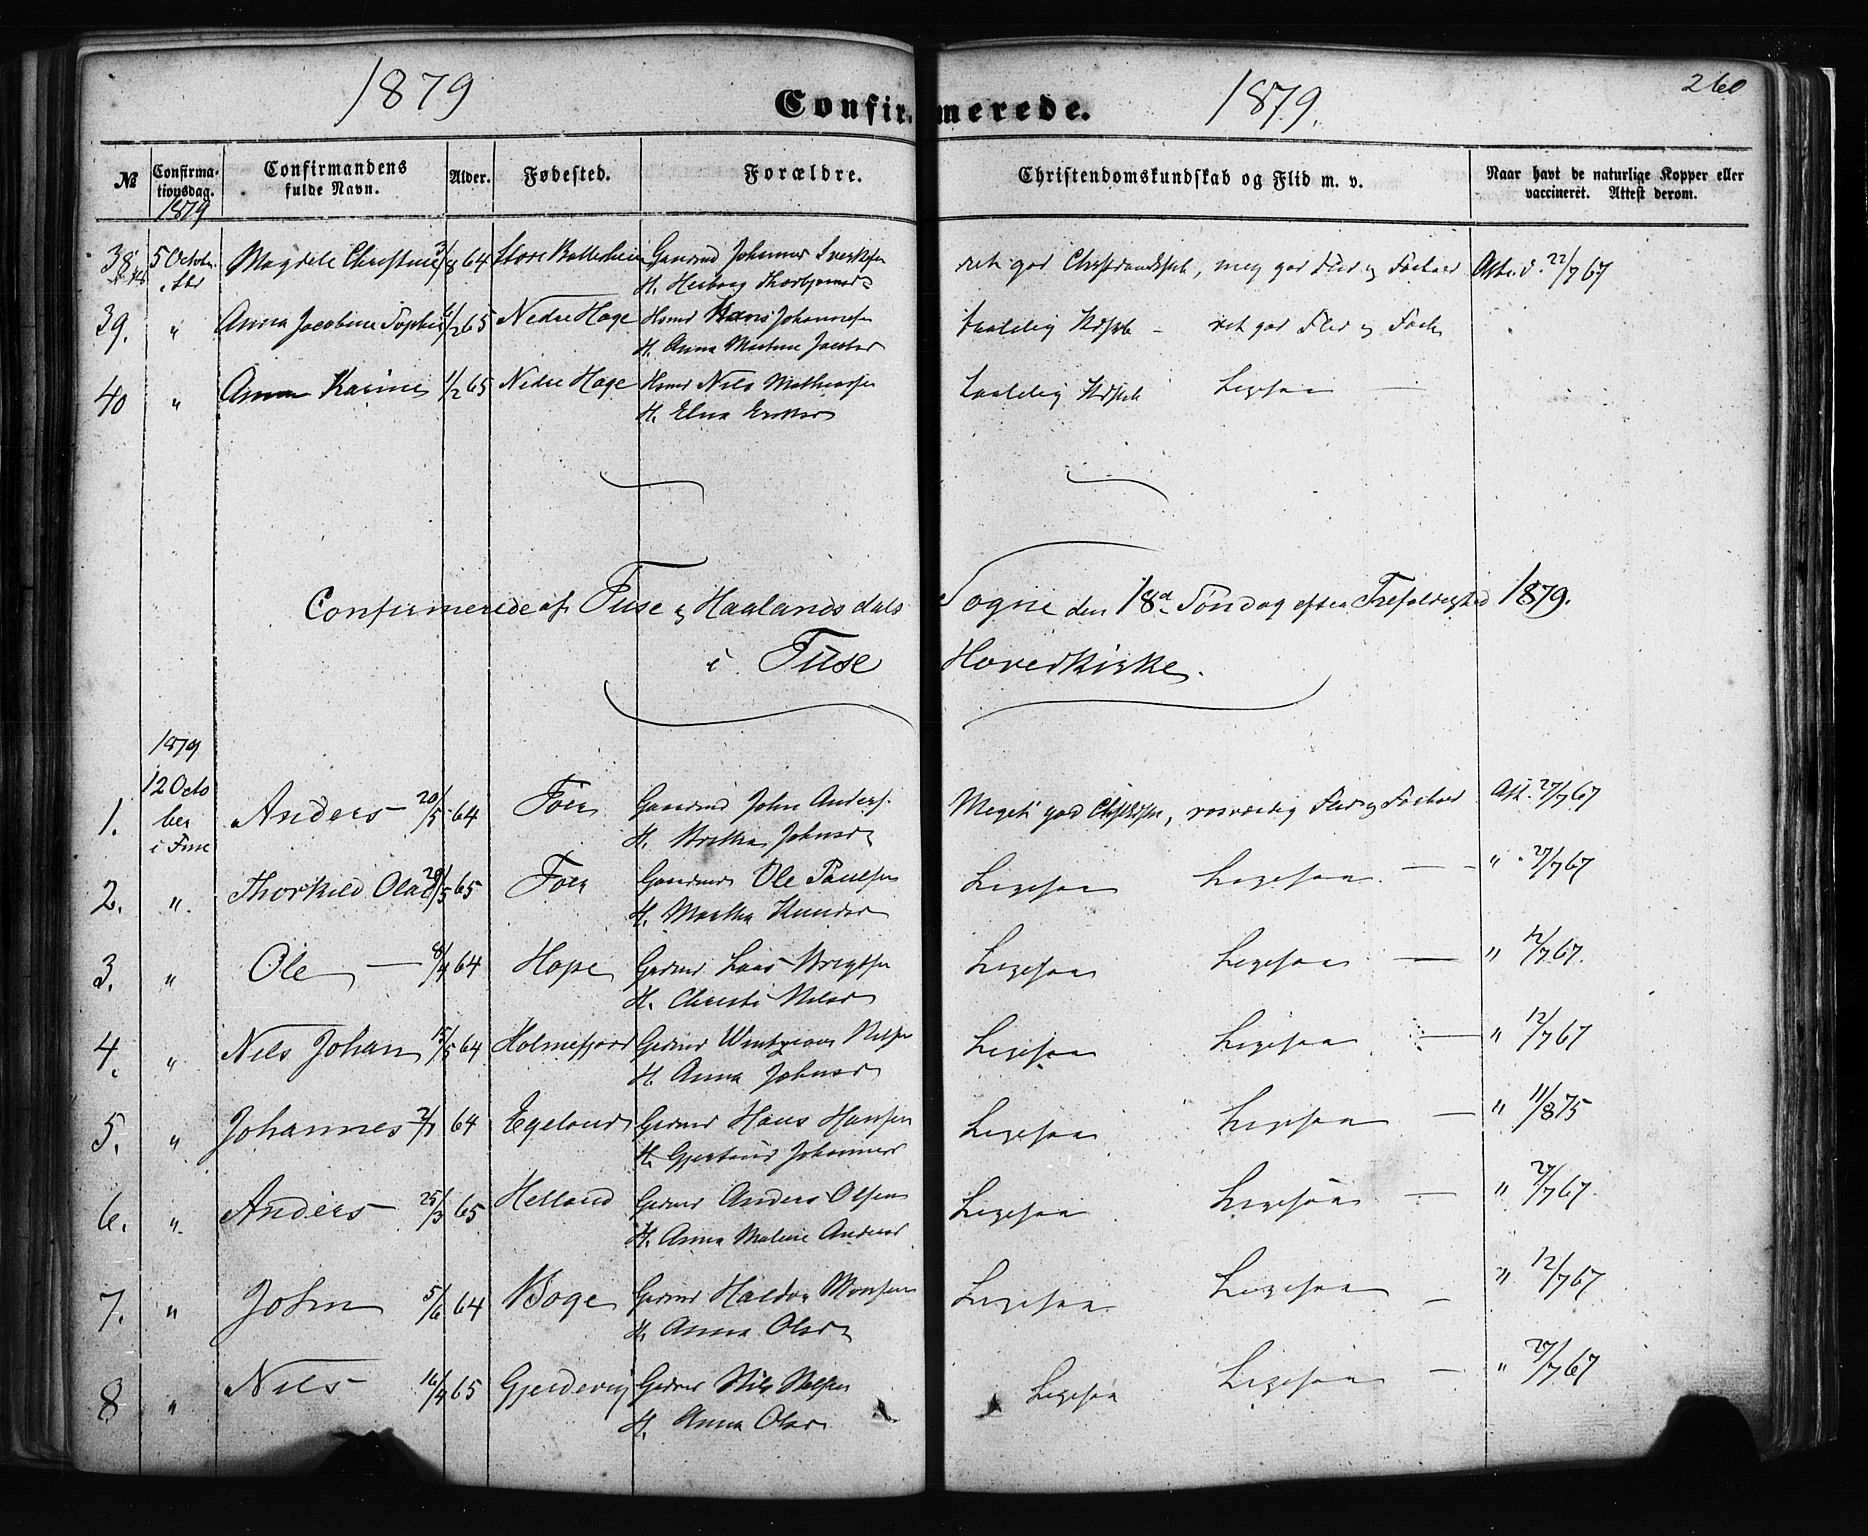 1879
Confirmerede.
1879.
260
№
Confirmationsdag.
Confirmandens fulde Navn.
Alder.
Fødested.
Forældre.
Christendomskundskab og Flid m. v.
Naar havt de naturlige Kopper eller vaccineret. Attest derom.
1879
38 5 October Magdele Christine 3/8 64 Store Gaardmd Johannes ret god meg god Flid og Forhold 22/7 67
H. Herborg
39. " Anna Jacobine Sophie 1/2 65 Nedre Hage Hsmd Hans Johannesen taalelig Kdskb - ret god Flid og Forh
H. Anna Martine Jacobsd
40 " Anna Karine 1/2 65 Nedre Hage Hsmd Nils Mathiassen taalelig Kdskb Ligesaa —
H. Elna Eriksd
Confirmerede af Fuse og Haalandsdals Sogne den 18de Søndag efter Trefoldighed 1879.
i Fuse Hovedkirke.
1879
1. 12 October i Fuse Anders - 20/5 64 Gaardmd John Anders. Meget god værdig Flid og Forhold Att. 27/7 67
H. Britha Johnsd
2. " Thorkild Olai 29/5 65 Gaardmd Ole Paulsen Ligesaa Ligesaa — " 27/7 67
H. Martha Knudsd
3. " Ole — 8/4 64 Hope Grdmd Lars Ligesaa Ligesaa — " 12/7 67.
H. Christi Nilsd
4. " Nils Johan 15/5 64 Holmefjord Grdmd Nilsen Ligesaa Ligesaa — " 12/7 67
H. Anna Johnsd
5. " Johannes 64 Egeland Grdmd Hans Hansen Ligesaa Ligesaa — " 11/8 75
H. Gjertrud Johannesd
6. " Anders - 25/3 65 Helland Grdmd Anders Olsen Ligesaa Ligesaa — " 27/7 67.
H. Anna Malene Andersd
7. " John 5/6 64 Boge Grdmd Haldor Monsen Ligesaa Ligesaa — " 12/7 67
H. Anna Olsd
8 " Nils 16/4 65 Gjerdevig Grdmd Nils Nilsen Ligesaa Ligesaa — " 27/7 67
H. Anna Olsd